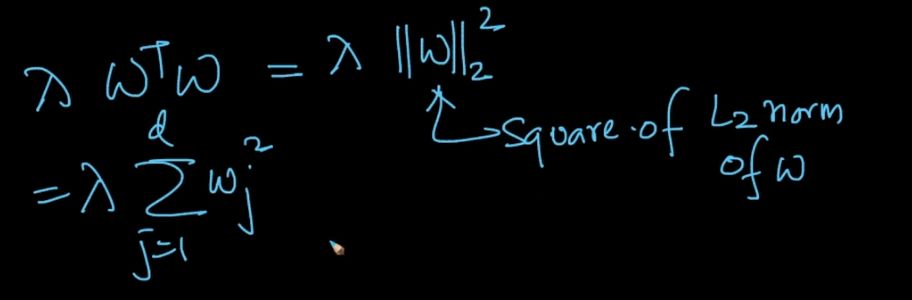 λ wᵀw = λ ||w||₂²
Square of L₂ norm
of w
= λ ∑_{j=1}^{d} w_j²